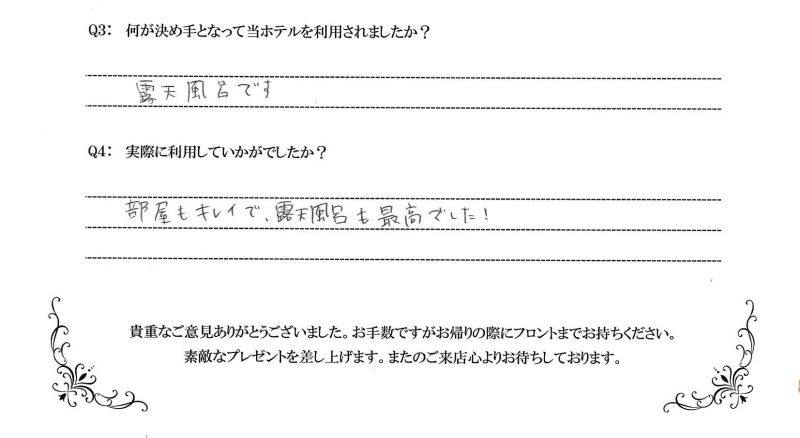 Q3: 何が決め手となって当ホテルを利用されましたか？
露天風呂です
Q4: 実際に利用していかがでしたか？
部屋もキレイで、露天風呂も最高でした！
貴重なご意見ありがとうございました。お手数ですがお帰りの際にフロントまでお持ちください。
素敵なプレゼントを差し上げます。またのご来店心よりお待ちしております。